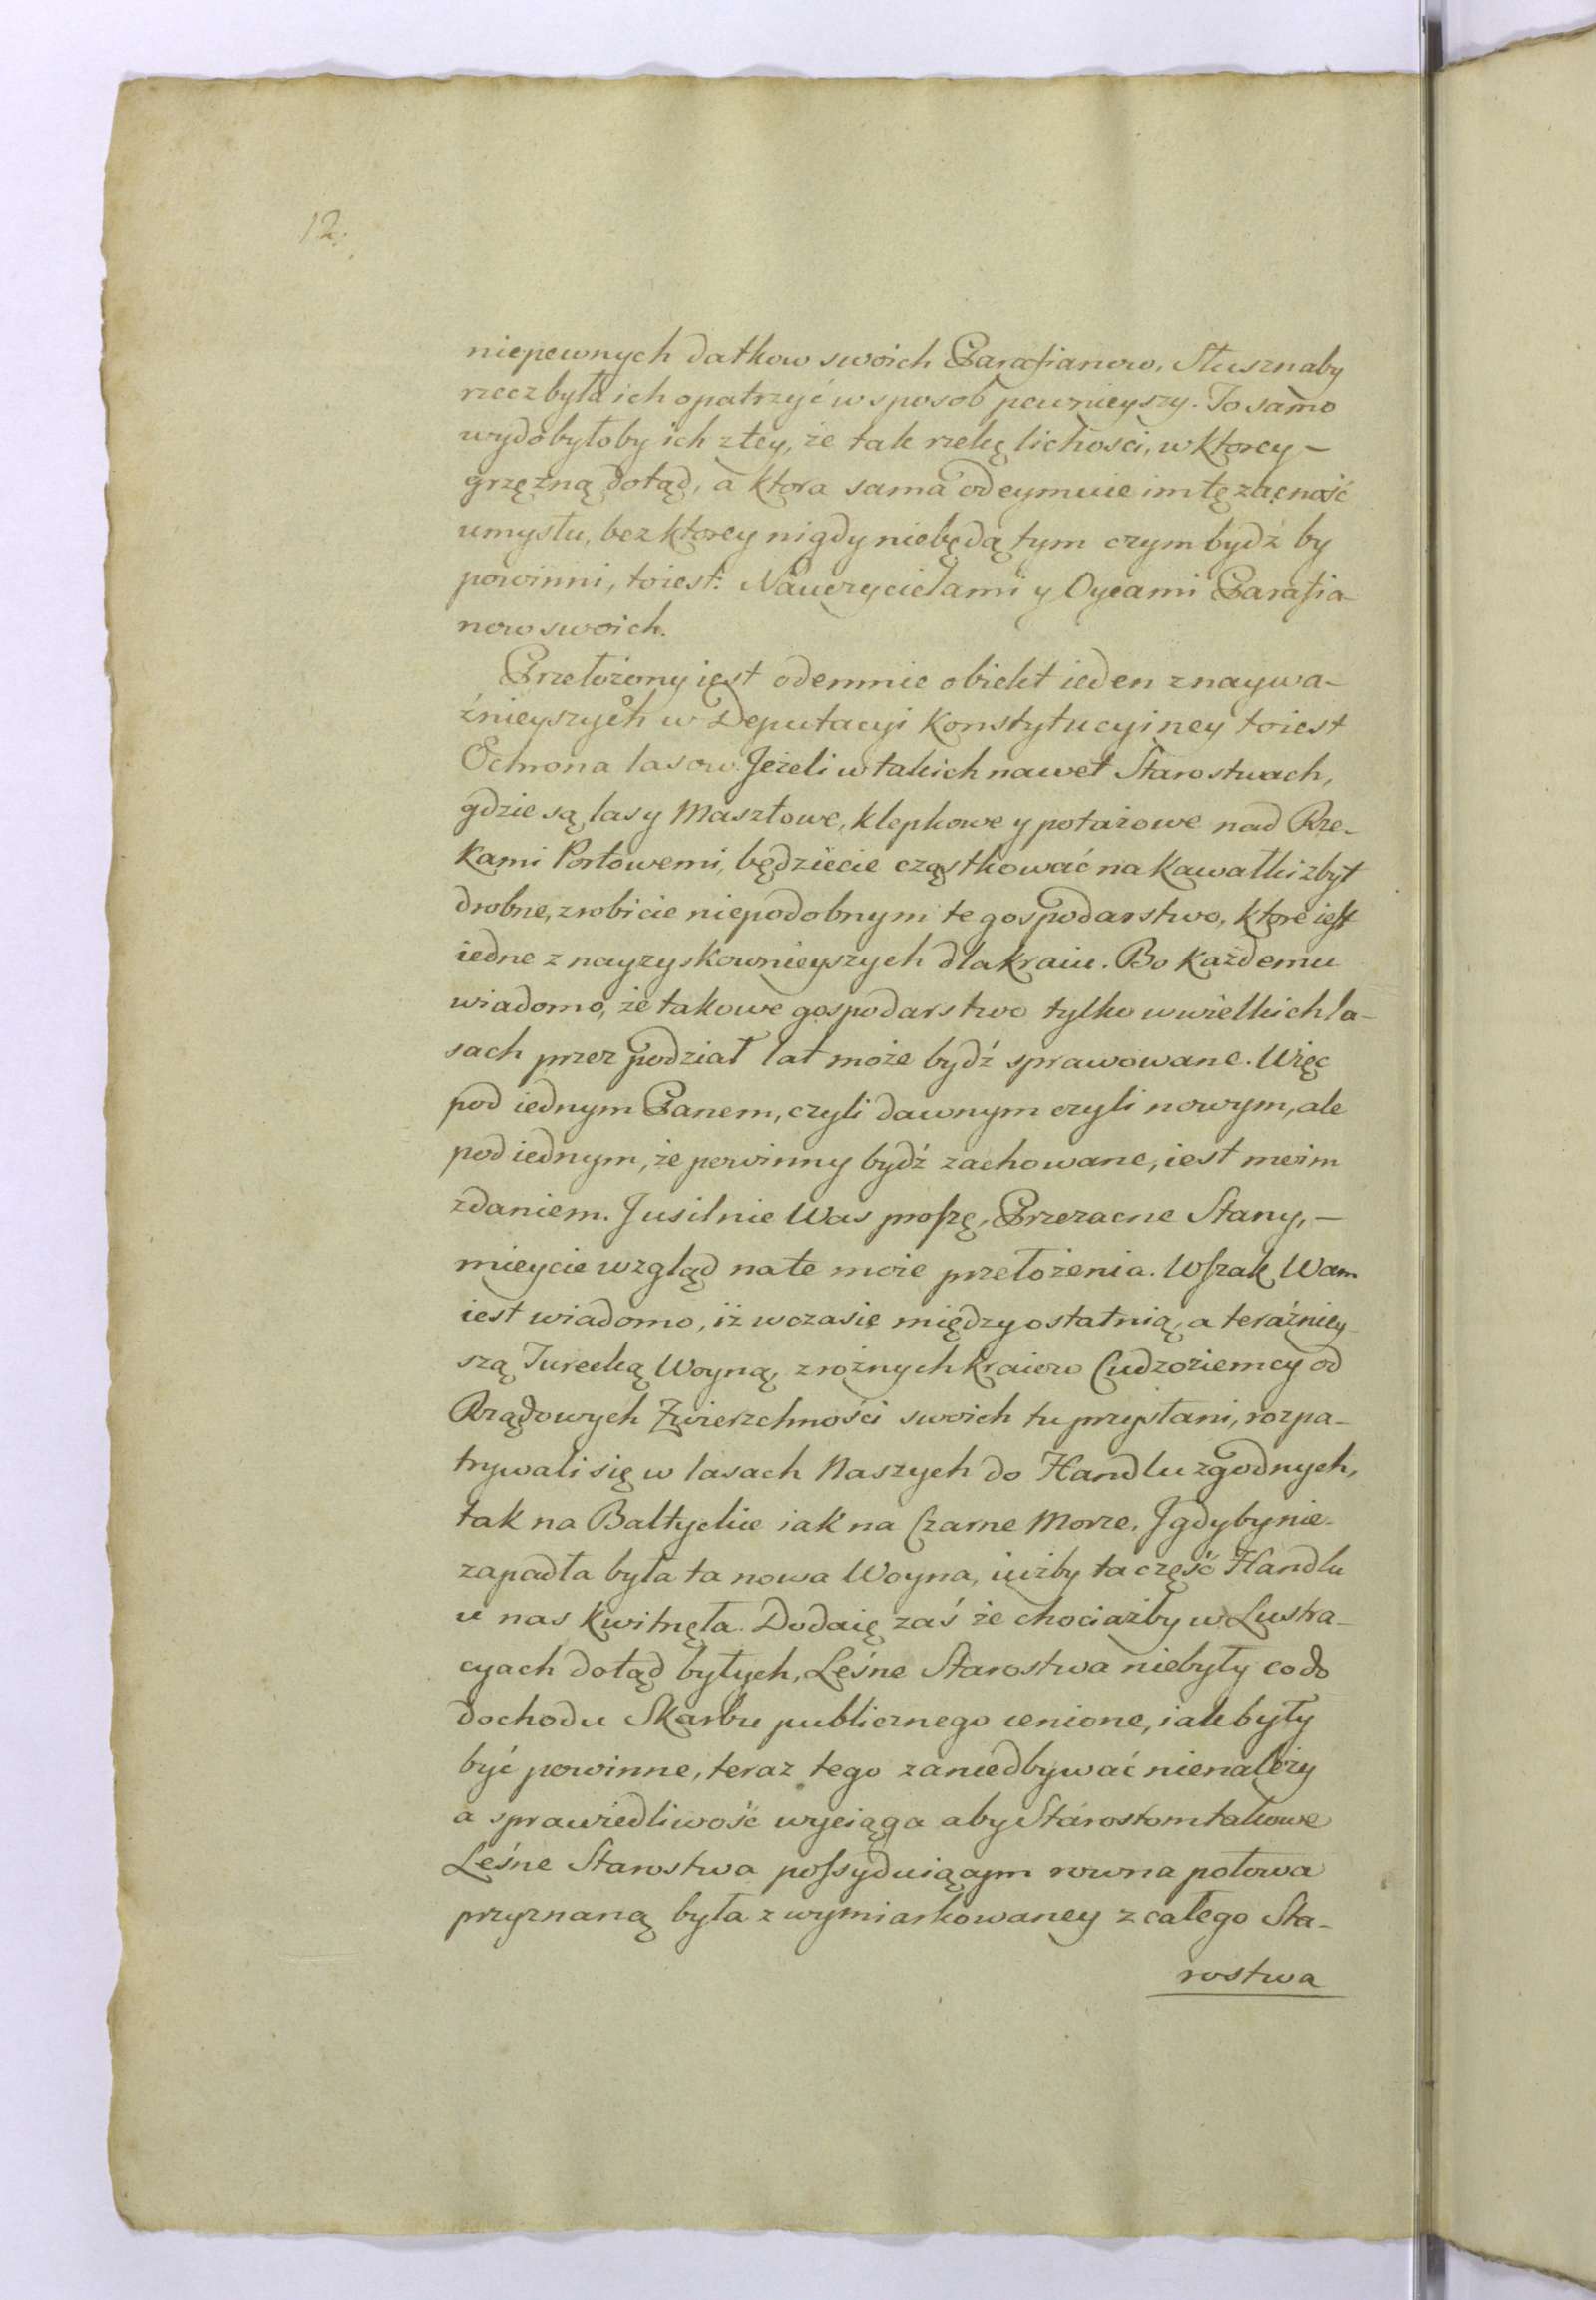 12.
niepewnych datkow swoich Parafianow, Słusznaby
rzecz była ich opatrzyć w sposob pewnieyszy. To samo
wydobyłoby ich z tey, że tak rzekę lichości, w ktorey –
grzęzną dotąd, a ktora sama odeymuie im tę zacność
umysłu, bez ktorey nigdy niebędą tym czym bydź by
powinni, toiest: Nauczycielami y Oycami Parafia-
now swoich.
Przełożony iest odemnie obiekt ieden z naywa-
żnieyszych w Deputacyi Konstytucyiney toiest
Ochrona lasow. Jeżeli w takich nawet Starostwach,
gdzie są lasy Masztowe, klepkowe y potażowe nad Rze-
kami Portowemi, będziecie cząstkować na kawałki zbyt
drobne, zrobicie niepodobnym te gospodarstwo, ktore iest
iedne z nayzyskownieyszych dla kraiu. Bo każdemu
wiadomo, że takowe gospodarstwo tylko w wielkich la-
sach przez podział lat może bydź sprawowane. Więc
pod iednym Panem, czyli dawnym czyli nowym, ale
pod iednym, że powinny bydź zachowane, iest moim
zdaniem. J usilnie Was proszę, Przezacne Stany, –
mieycie wzgląd na te moie przełożenia. Wszak Wam
iest wiadomo, iż w czasie między ostatnią, a teraźniey-
szą Turecką Woyną, z rożnych kraiow Cudzoziemcy od
Rządowych Zwierzchności swoich tu przysłani, rozpa-
trywali się w lasach Naszych do Handlu zgodnych,
tak na Baltyckie iak na Czarne Morze. J gdyby nie-
zapadła była ta nowa Woyna, iużby ta część Handlu
u nas kwitnęła. Dodaię zaś że chociażby w Lustra-
cyach dotąd byłych, Leśne Starostwa niebyły co do
dochodu Skarbu publicznego cenione, iak były
być powinne, teraz tego zaniedbywać nienależy
a sprawiedliwość wyciąga aby Starostom takowe
Leśne Starostwa possyduiącym rowna połowa
przyznaną była z wymiarkowaney z całego Sta-
rostwa